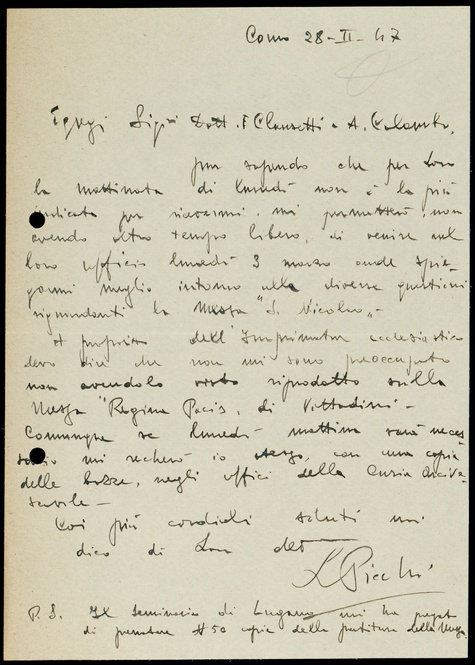 Como 28-II-47
Egregi Sigri Dott. F Clausetti e A. Colombo,
pur sapendo che per Loro
la mattinata di lunedì non è la più
indicata per ricevermi, mi permetterò, non
avendo altro tempo libero, di venire nel
loro ufficio lunedì 3 marzo onde spie-
garmi meglio intorno alla diverse questioni
riguardanti la Messa "S. Nicolao„-
A proposito dell'Imprimatur ecclesiastico
devo dire che non mi sono preoccupato
non avendolo visto riprodotto sulla
Messa "Regina Pacis„ di Vittadini -
Comunque se lunedì mattina sarà neces
sario mi recherò io stesso, con una copia
delle bozze, negli uffici della Curia Arcive-
scovile -
Coi più cordiali saluti mi
dico di Loro dev
L Picchi
P.S. Il Seminario di Lugano mi ha pregato
di prenotare 50 copie della partitura della Messa.